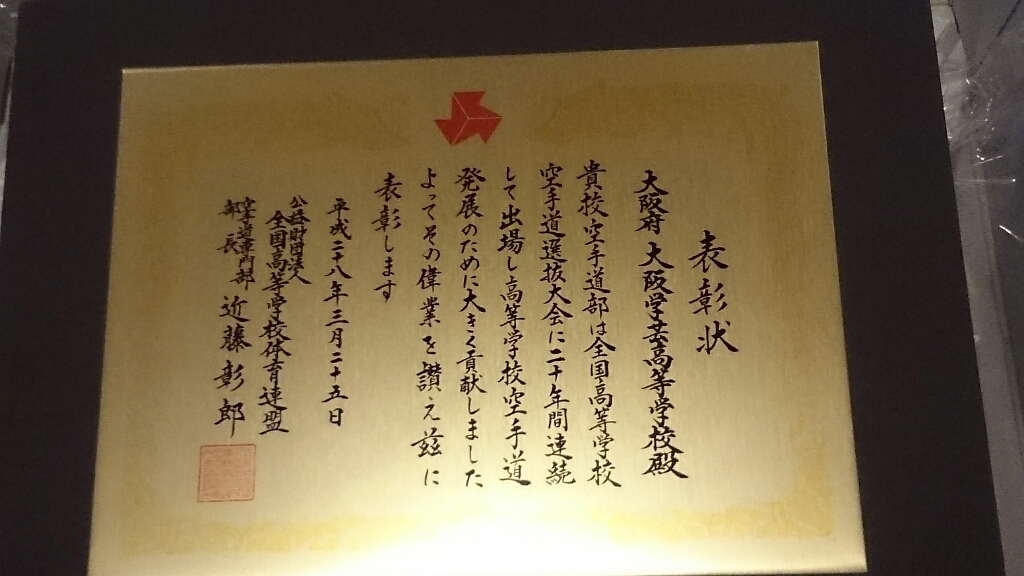 表彰状
大阪府 大阪学芸高等学校殿
貴校空手道部は全国高等学校
空手道選抜大会に二十年間連続
して出場し高等学校空手道
発展のために大きく貢献しました
よってその偉業を讃え茲に
表彰します
平成二十八年三月二十五日
公益財団法人
全国高等学校体育連盟
空手道専門部
部長 近藤彰郎